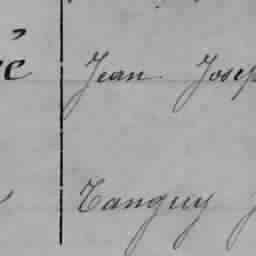 Jean Josep
Tanguy